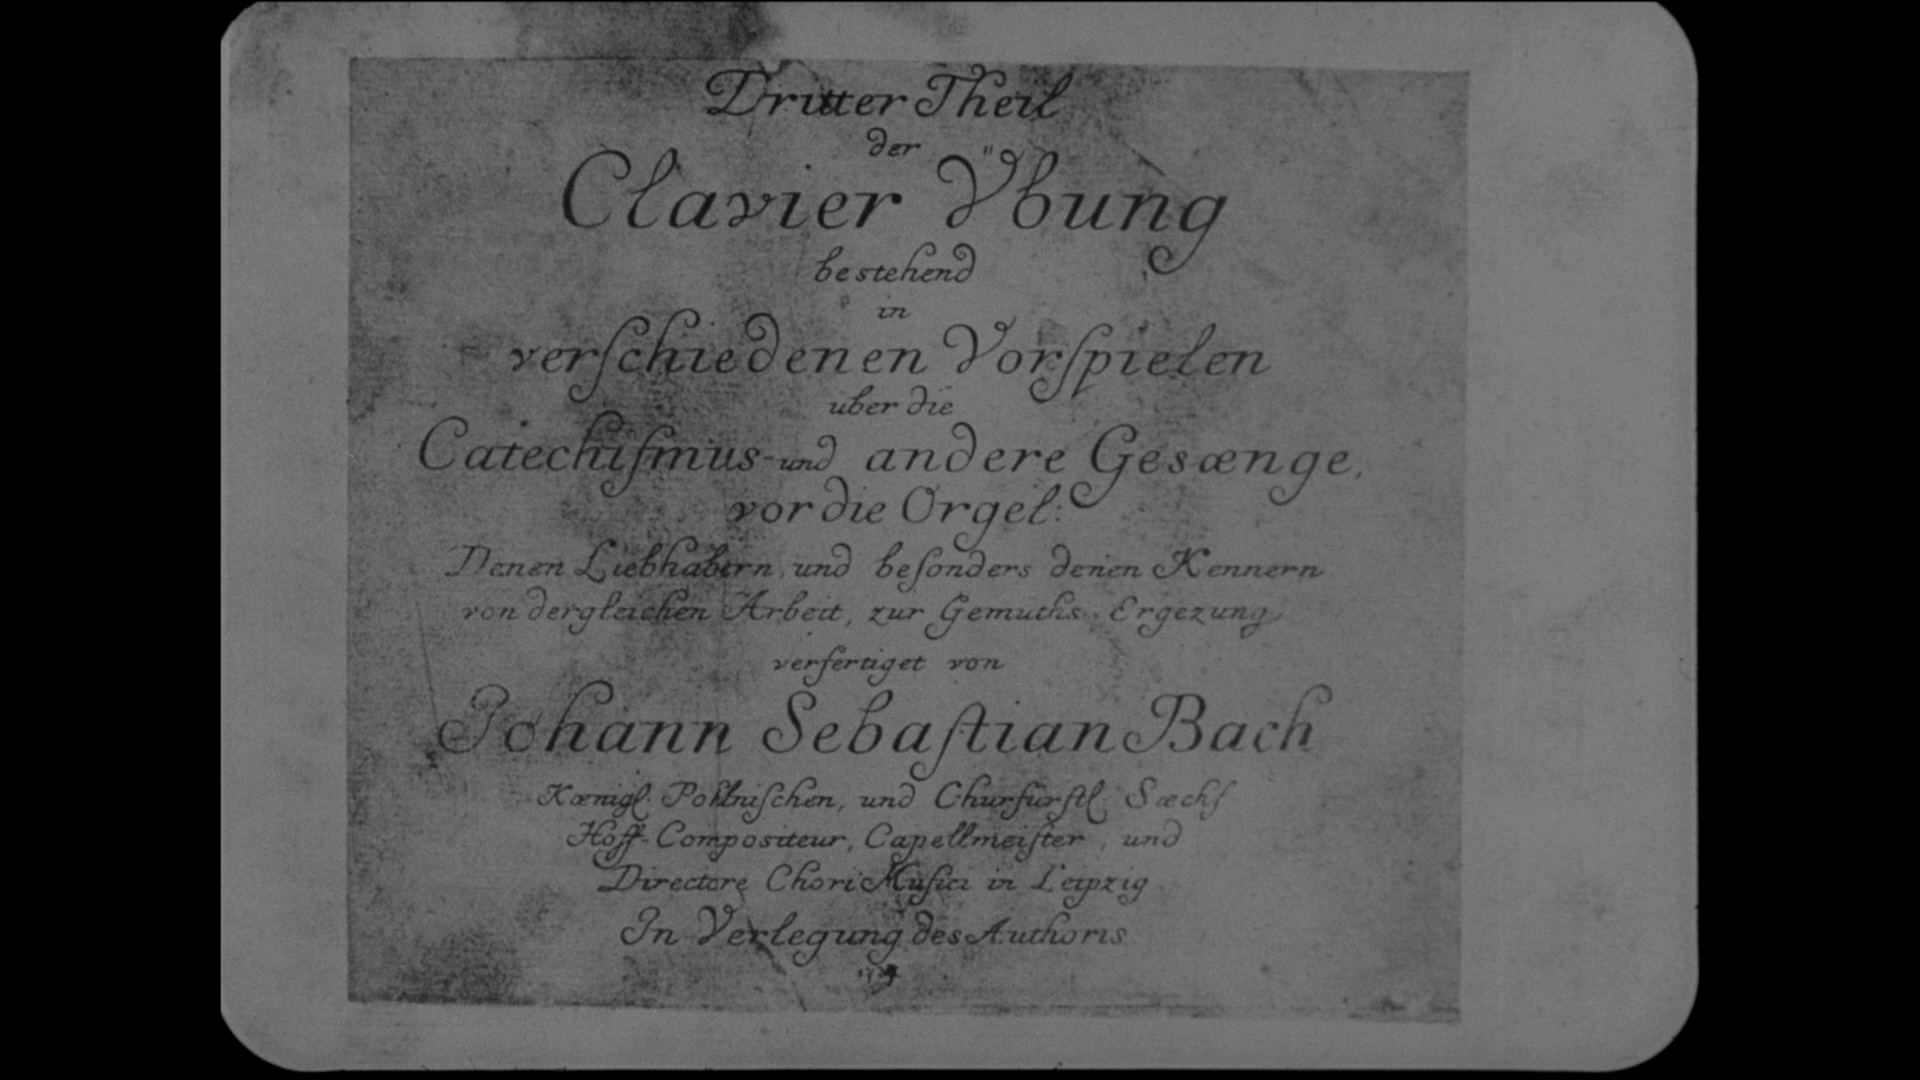 Dritter Theil
der
Clavier Ÿbung
bestehend
in
verſchiedenen Vorſpielen
uber die
Catechiſmus-und andere Gesænge,
vor die Orgel:
Denen Liebhabern, und beſonders denen Kennern
von dergleichen Arbeit, zur Gemuths Ergezung
verfertiget von
Johann Sebaſtian Bach
Kœnigl. Pohlniſchen, und Churfürſtl. Sæchſ
Hoff-Compositeur, Capellmeiſter, und
Directore Chori Muſici in Leipzig
In Verlegung des Authoris